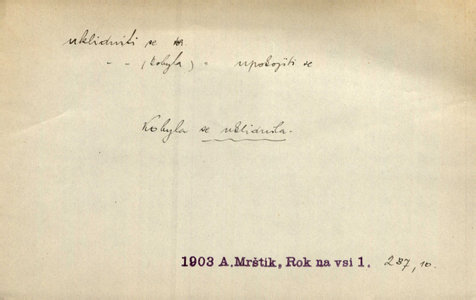 uklidniti se
" " (kobyla) = upokojiti se
Kobyla se uklidnila.
1903 A. Mrštík, Rok na vsi 1. 287, 10.